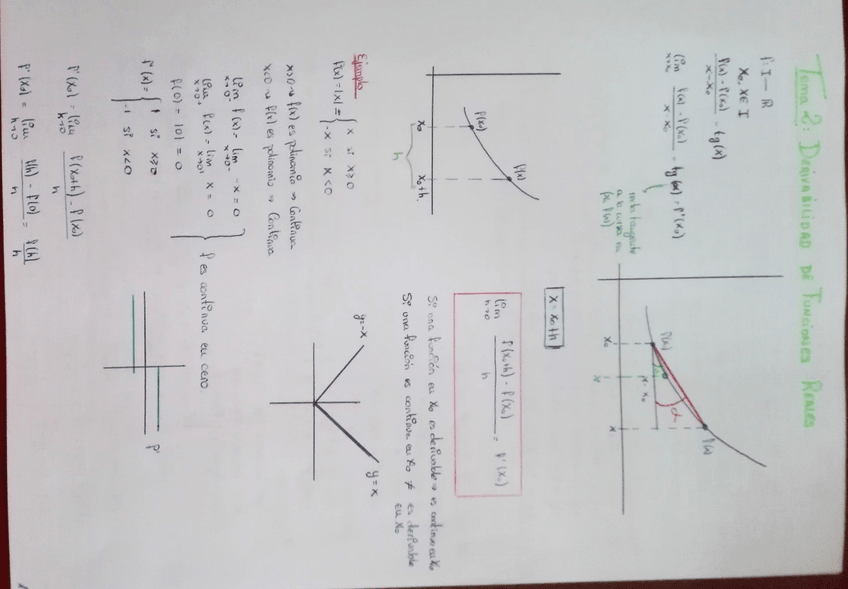 Tema 2: DERIVABILIDAD DE FUNCIONES REALES
f: I → R
x₀, x ∈ I
f(x) - f(x₀) / x - x₀ = tg(α)
lim x→x₀ f(x) - f(x₀) / x - x₀ = tg(α₀) = f'(x₀)
recta tangente
a la curva en
(x, f(x))
f(x₀)
f(x)
α
x - x₀
x₀
x
f(x₀)
f(x)
x₀
x₀+h
h
x = x₀+h
lim h→0 f(x₀+h) - f(x₀) / h = f'(x₀)
Si una función en x₀ es derivable → es continua en x₀
Si una función es continua en x₀ ≠ es derivable
en x₀
Ejemplo
f(x) = |x| = { x si x ≥ 0
-x si x < 0
x>0 → f(x) es polinomio → Continua
x<0 → f(x) es polinomio → Continua
lim x→0⁻ f(x) = lim x→0⁻ -x = 0
lim x→0⁺ f(x) = lim x→0⁺ x = 0
f(0) = |0| = 0
} f es continua en cero
y=-x
y=x
f'(x) = { 1 si x≥0
-1 si x<0
f'
f'(x₀) = lim h→0 f(x₀+h) - f(x₀) / h
f'(x₀) = lim h→0 f(h) - f(0) / h = f(h) / h